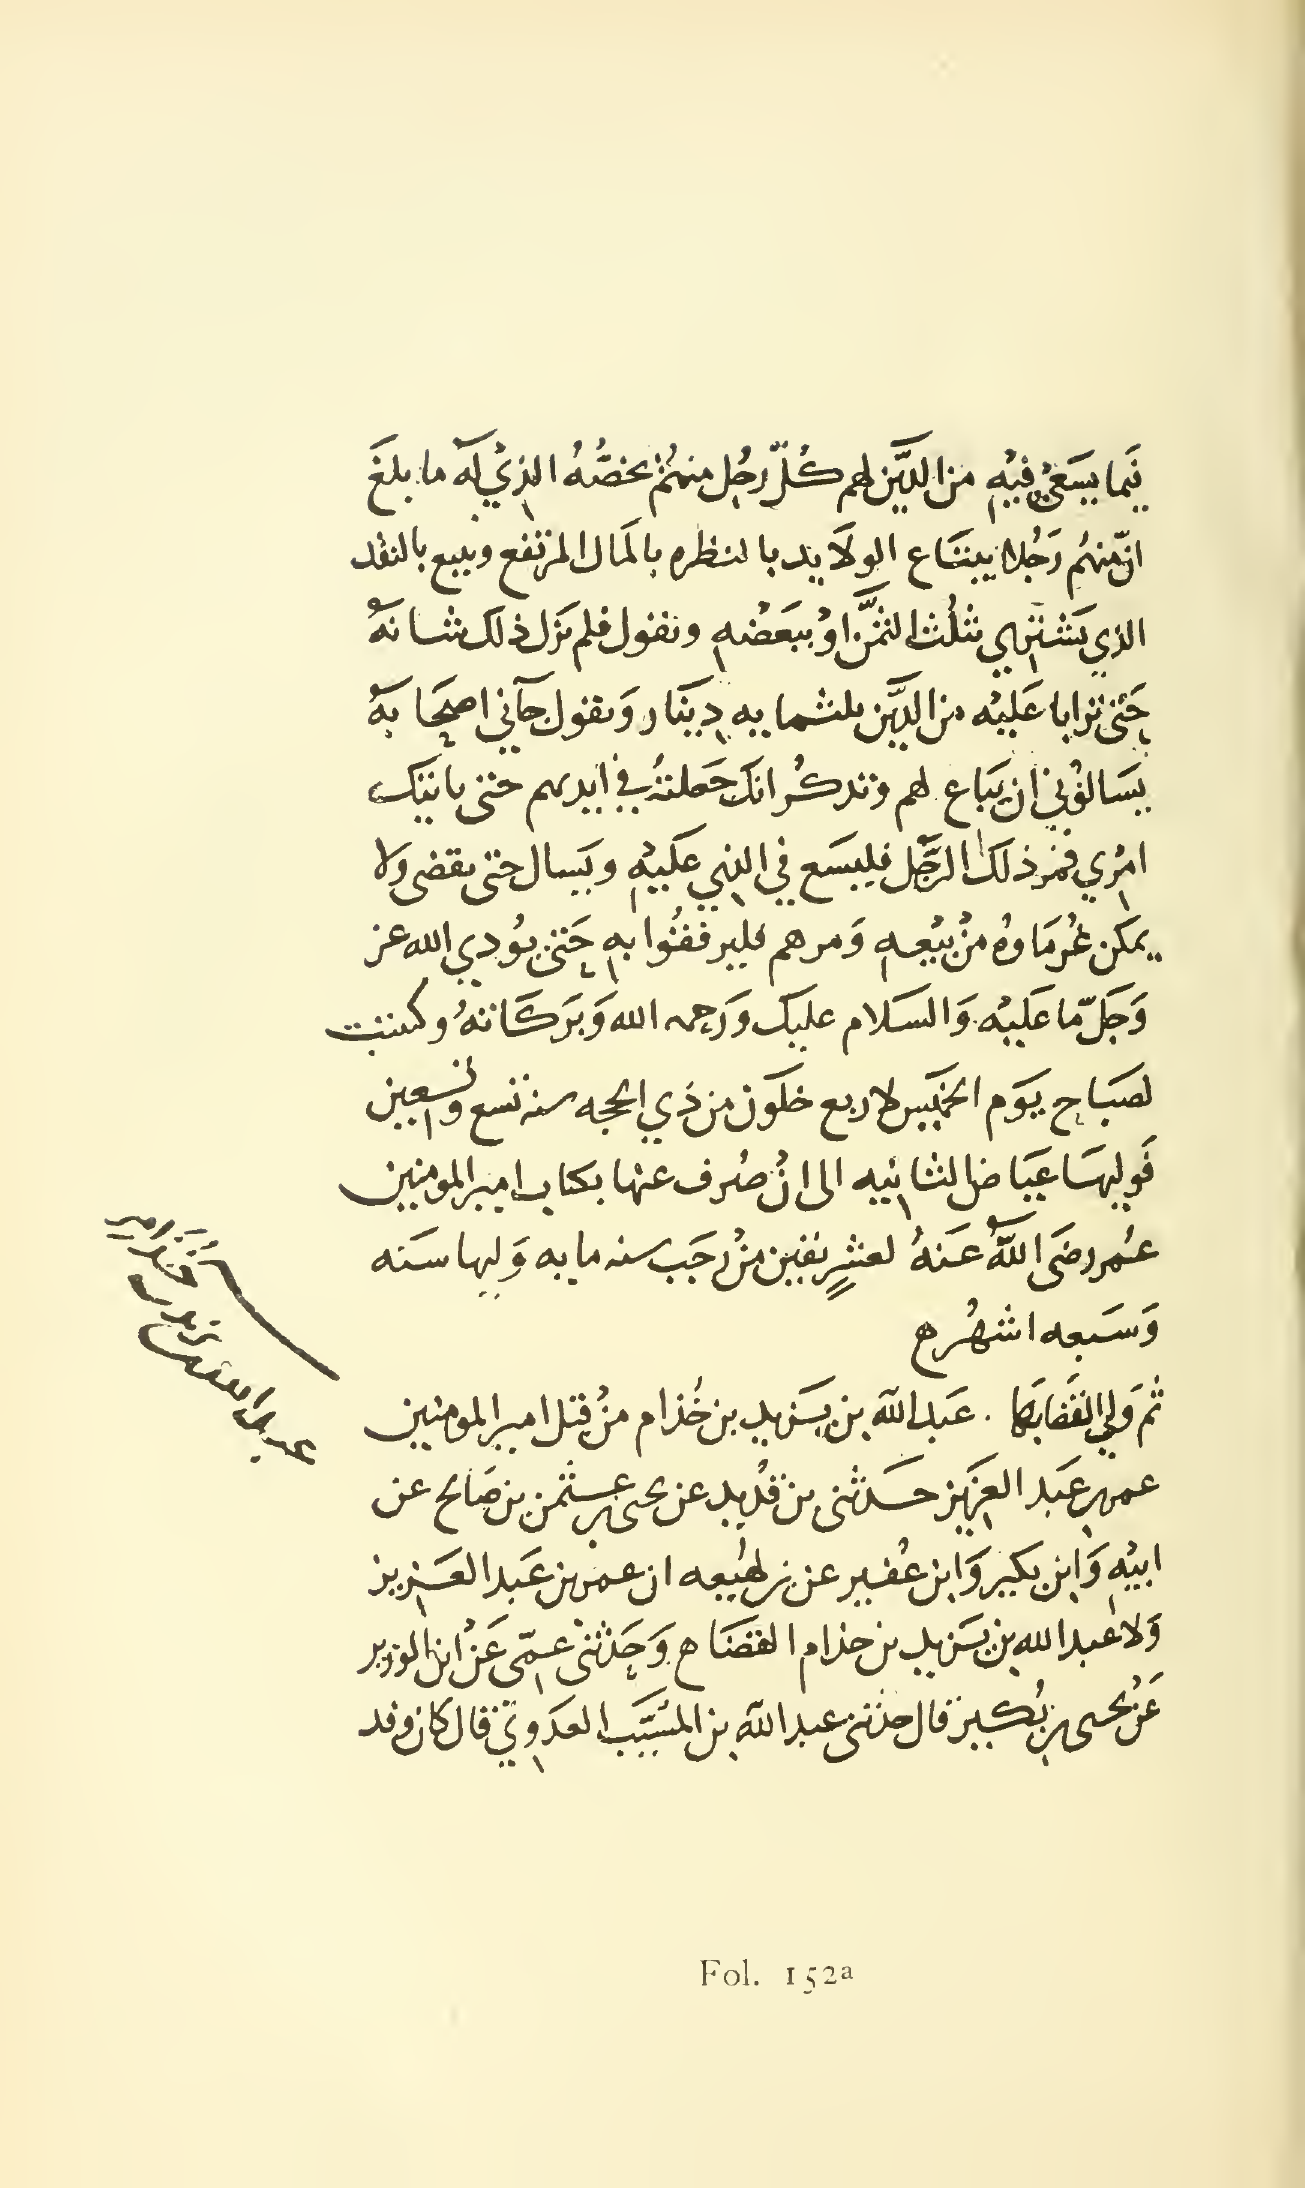 فيما يسعى فيه من الدَّين لهم كُلّ رجُل منهُم بخصُّهُ الذي لَهُ ما بلغَ
انّ منهُم رَجُلا يبتاع الولايد بالنظره بالمال المرتفع ويبيع بالنقد
الذي يَشتري بثلُث الثمَّن اوْ ببَعْضه ويقول فلم يَزل ذلك شانهُ
حَتى ترابا عَليْه من الدَّين بلثمايه دِينَار وَيقول جآني اصحابهُ
يسَالوُني ان يَباع لهم وتذكُر انك جَعلتهُ في ايديهم حتى ياتيَك
امْرِي فمُر ذلك الرَّجُل فليسَع في الذي عَليْهِ ويَسال حتى يقضى ولا
يمكن غُرمَاوهُ منْ بيْعهِ وَمرهم فليرفقُوا بهِ حَتى يوُدي الله عز
وَجَلّ ما عَليْه وَالسَلام عليك وَرَحمه الله وَبَرَكَاتهُ وكتبت
لصَبَاح يَوَم الخمَيس لاربع خلَون من ذي الحجه سنه تسع وتسعين
فَوليهَا عيَاض الثانيه الى انْ صُرف عنها بكتاب امير المومنين
عُمر رضَى اللَّهُ عَنهُ لعشرٍ بقين منْ رجَب سنه مايه وَليها سَنه
وَسَبعه اشهُر ه
ثمَ وَلي القضَا بهَا . عَبد الله بن يَزيد بن خُذام منْ قبل امير المومنين
عمر بن عَبد العزيز حَدثنى بن قدُيد عن يحيى بن عثمن بن صَالح عن
ابيْهِ وَابن بكير وَابن عُفير عن بن لهيُعه ان عمر بن عَبد العَزيز
وَلا عبد الله بن يَزيد بن خذام القضَا ه وَحَدثنى عمّى عَنْ ابن الوزير
عَنْ يحيى بن بُكير قال حدثنى عبد الله بن المسَيَّب العدَوي قال كان وفد
عبد الله
بن يزيد
Fol. 152a